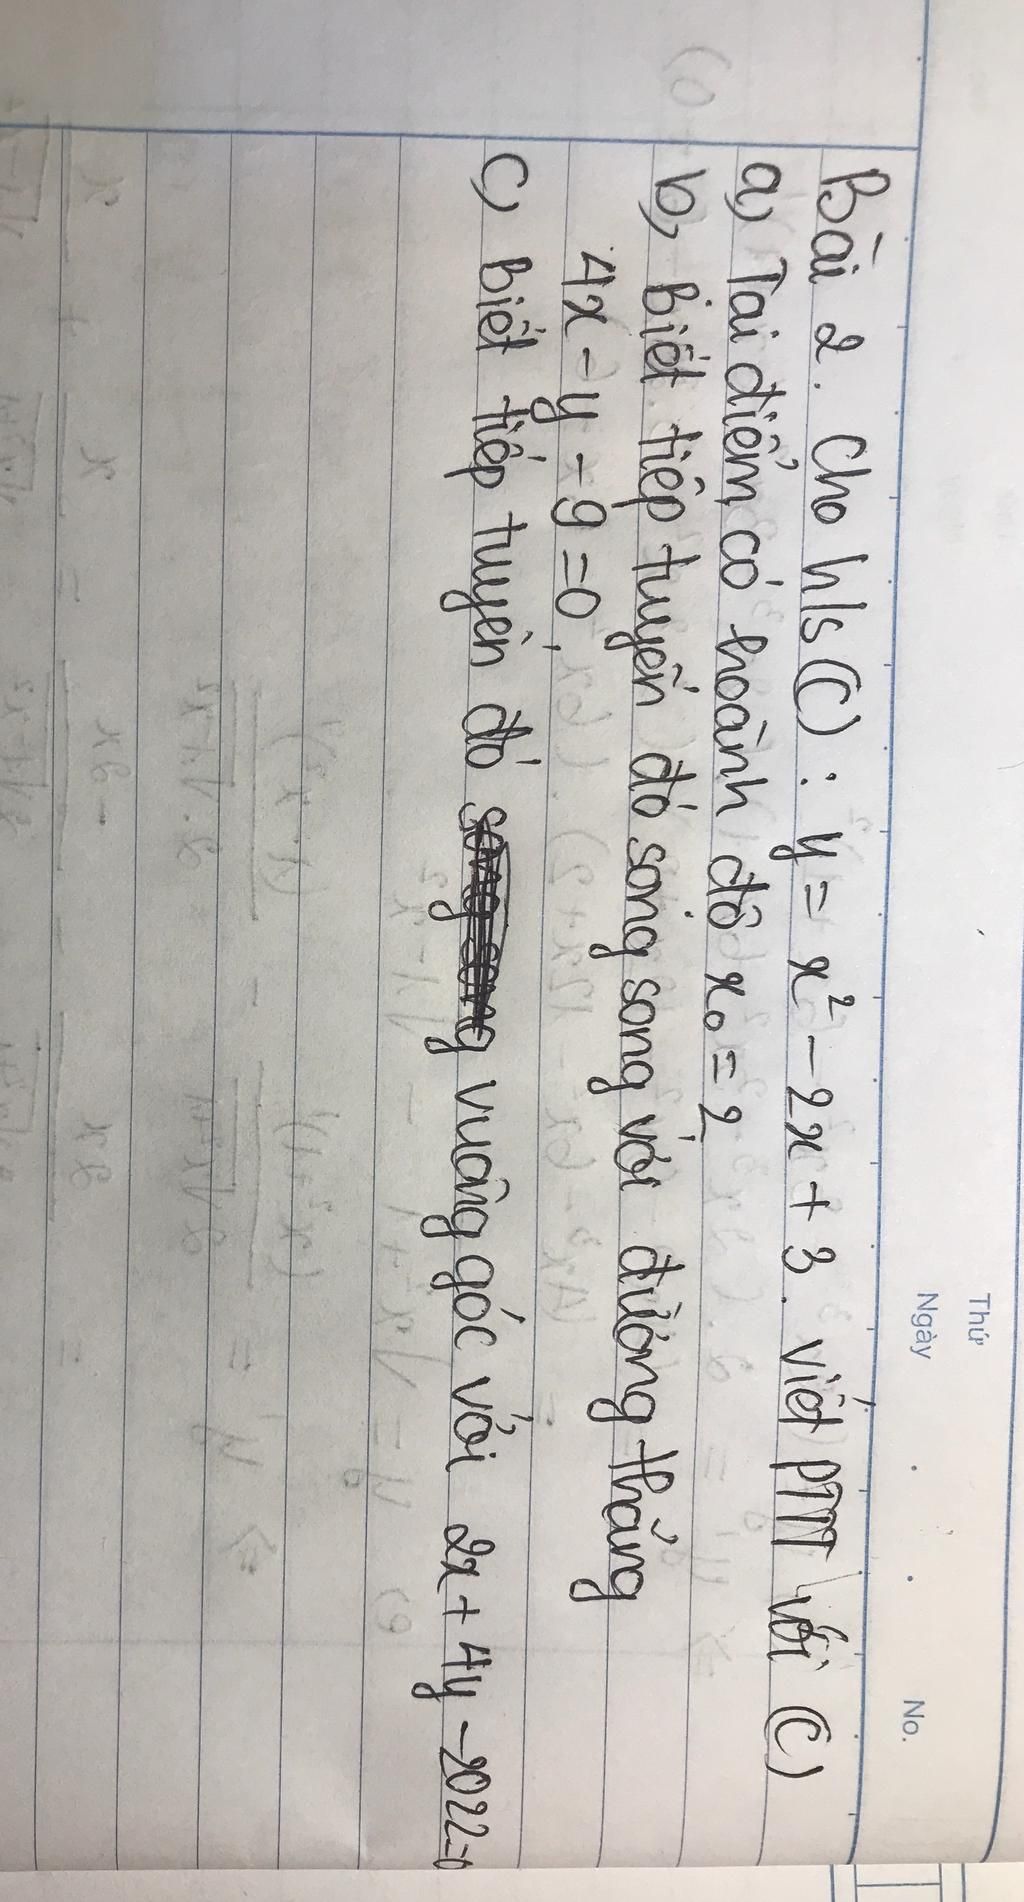 Thứ
Ngày . . No.
Bài 2. Cho h/s (C) : y = x² - 2x + 3. viết PTTT với (C)
a, Tại điểm có hoành độ x₀ = 2
b, biết tiếp tuyến đó song song với đường thẳng
4x - y - 9 = 0
c, biết tiếp tuyến đó vuông góc với 2x + 4y - 2022 = 0